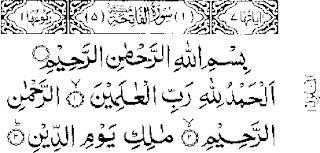 اٰيَاتُهَا ٧ (١) سُوْرَةُ الْفَاتِحَةِ (٥) رُكُوْعُهَا ١
بِسْمِ اللّٰهِ الرَّحْمٰنِ الرَّحِيْمِ
اَلْحَمْدُ لِلّٰهِ رَبِّ الْعٰلَمِيْنَ ۙ﴿١﴾ الرَّحْمٰنِ
الرَّحِيْمِ ۙ﴿٢﴾ مٰلِكِ يَوْمِ الدِّيْنِ ؕ